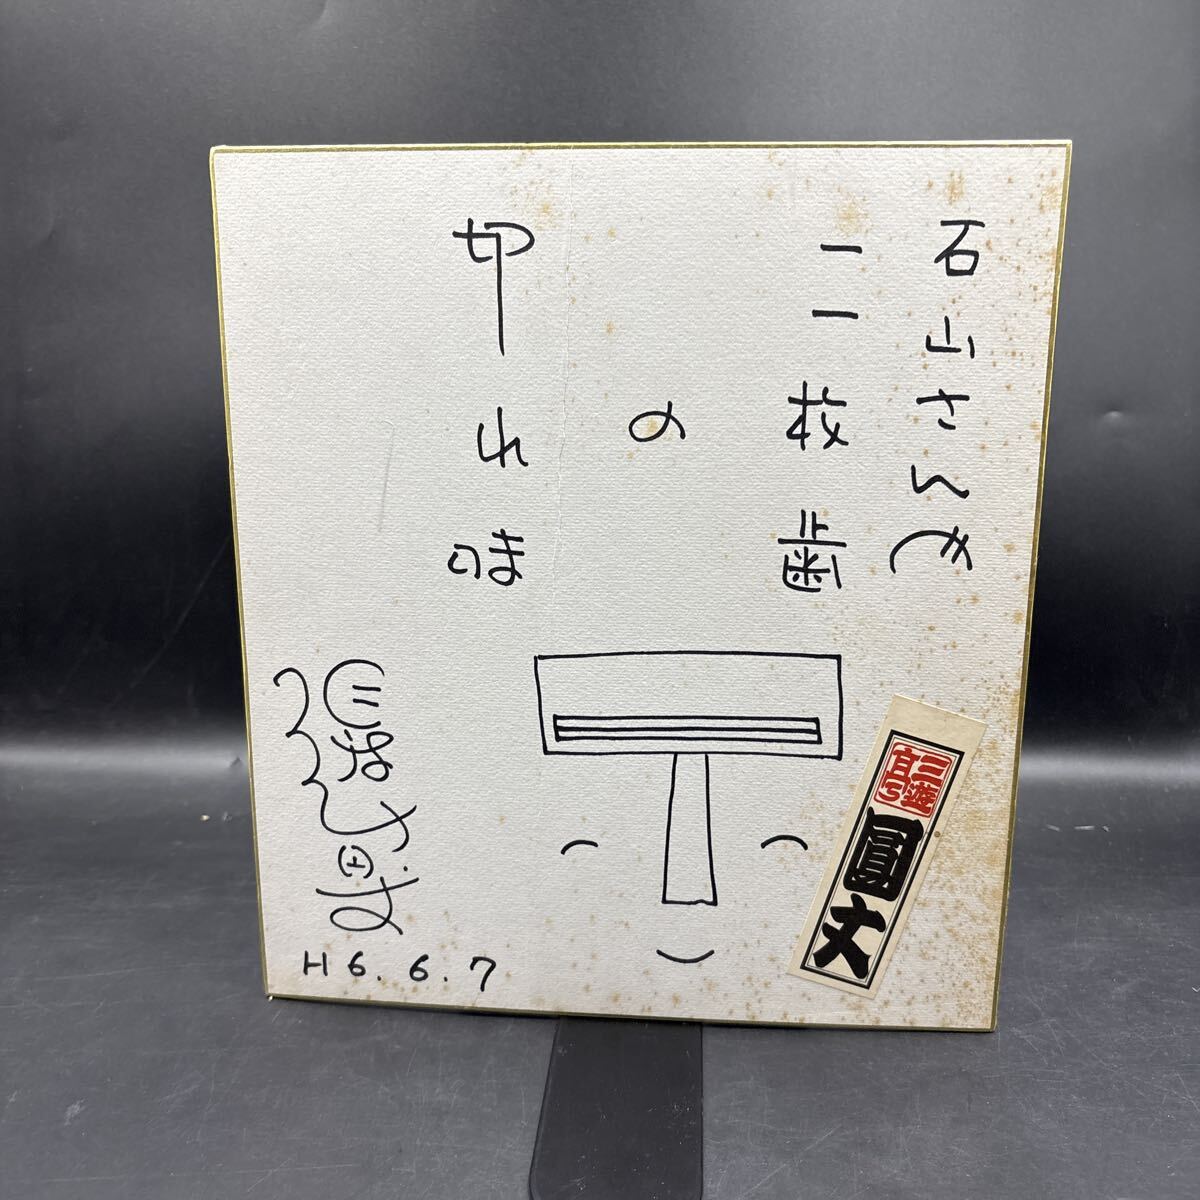 石山さん江
二枚歯
の
切れ味
三遊亭円丈
H6.6.7
三遊亭
圓丈